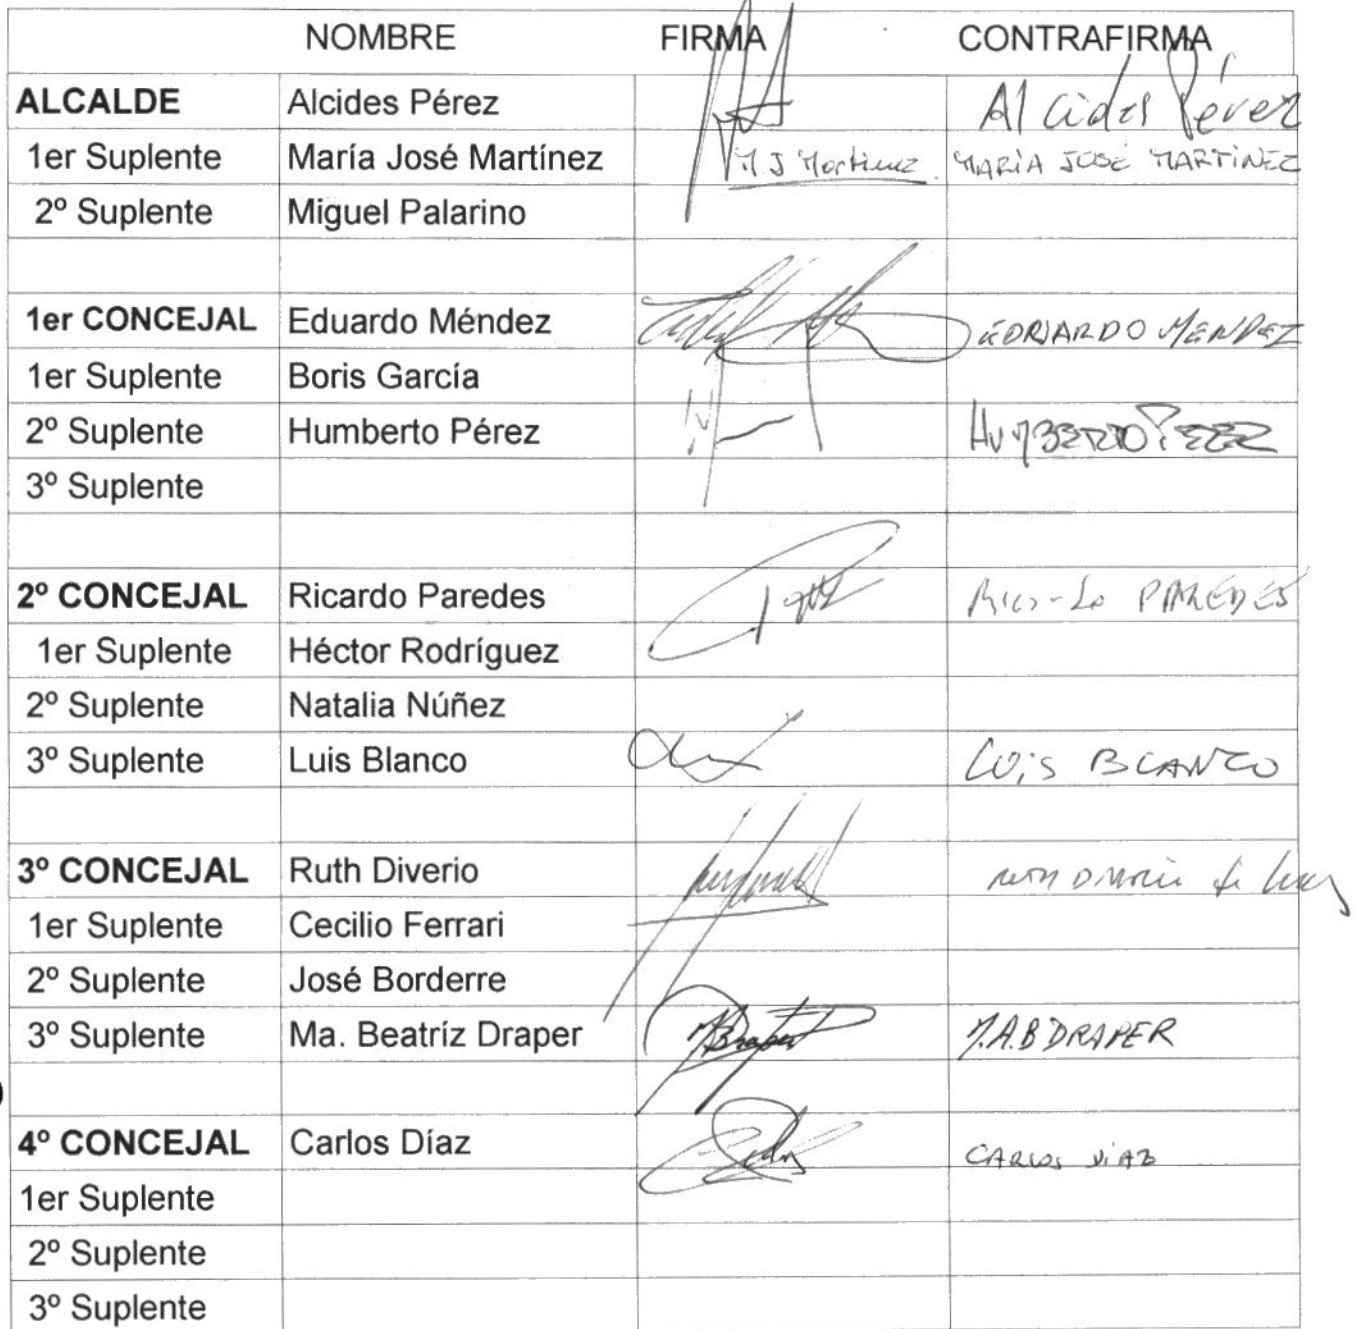 NOMBRE FIRMA CONTRAFIRMA
ALCALDE Alcides Pérez Alcides Pérez
1er Suplente María José Martínez M J Martinez MARÍA JOSÉ MARTÍNEZ
2º Suplente Miguel Palarino
1er CONCEJAL Eduardo Méndez EDUARDO MENDEZ
1er Suplente Boris García
2º Suplente Humberto Pérez HUMBERTO PEREZ
3º Suplente
2º CONCEJAL Ricardo Paredes PAREDES
1er Suplente Héctor Rodríguez
2º Suplente Natalia Núñez
3º Suplente Luis Blanco LUIS BLANCO
3º CONCEJAL Ruth Diverio
1er Suplente Cecilio Ferrari
2º Suplente José Borderre
3º Suplente Ma. Beatríz Draper MBDraper M.A.B DRAPER
4º CONCEJAL Carlos Díaz CARLOS DIAZ
1er Suplente
2º Suplente
3º Suplente